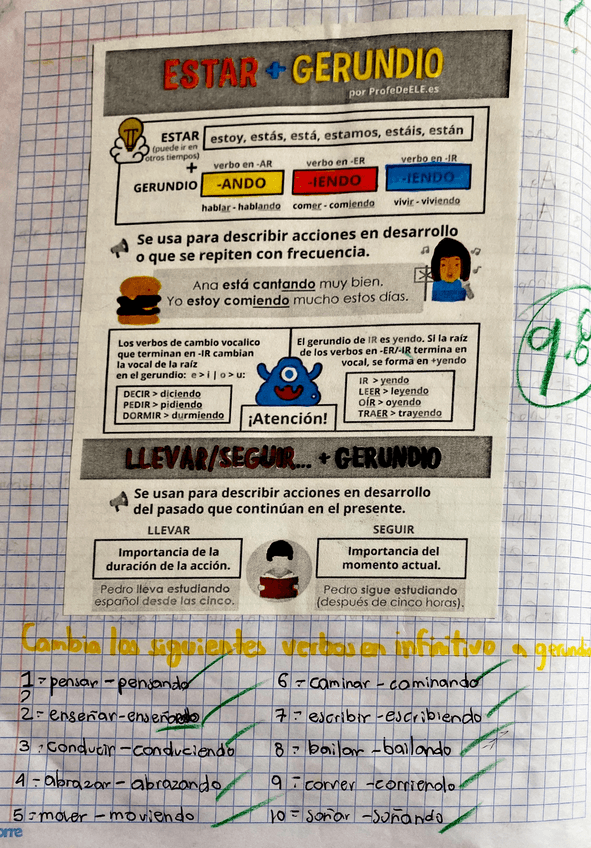 ESTAR + GERUNDIO
por ProfeDeELE.es
ESTAR
(puede ir en
otros tiempos)
estoy, estás, está, estamos, estáis, están
+
GERUNDIO
verbo en -AR
verbo en -ER
verbo en -IR
-ANDO
-IENDO
-IENDO
hablar - hablando
comer - comiendo
vivir - viviendo
Se usa para describir acciones en desarrollo
o que se repiten con frecuencia.
Ana está cantando muy bien.
Yo estoy comiendo mucho estos días.
Los verbos de cambio vocalico
que terminan en -IR cambian
la vocal de la raíz
en el gerundio: e > i | o > u:
DECIR > diciendo
PEDIR > pidiendo
DORMIR > durmiendo
¡Atención!
El gerundio de IR es yendo. Si la raíz
de los verbos en -ER/-IR termina en
vocal, se forma en +yendo
IR > yendo
LEER > leyendo
OÍR > oyendo
TRAER > trayendo
9.8
LLEVAR/SEGUIR... + GERUNDIO
Se usan para describir acciones en desarrollo
del pasado que continúan en el presente.
LLEVAR
Importancia de la
duración de la acción.
Pedro lleva estudiando
español desde las cinco.
SEGUIR
Importancia del
momento actual.
Pedro sigue estudiando
(después de cinco horas).
Cambia los siguientes verbos en infinitivo a gerundio
1= pensar - pensando
2= enseñar - enseñando
3= conducir - conduciendo
4= abrazar - abrazando
5= mover - moviendo
6= caminar - caminando
7= escribir - escribiendo
8= bailar - bailando
9= correr - corriendo
10= soñar - soñando
orre